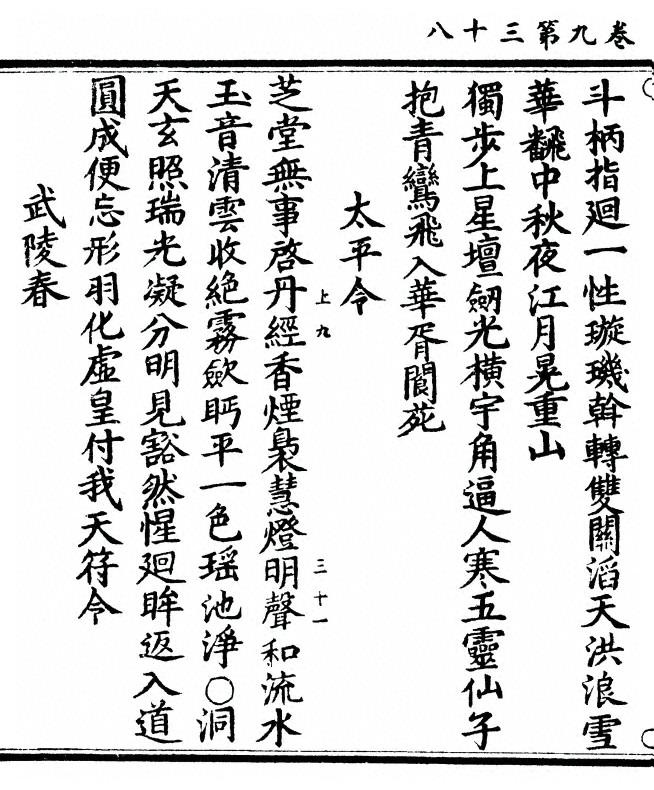 八十三第九卷
斗柄指迴一性璇璣斡轉雙關滔天洪浪雪
華飜中秋夜江月晃重山
獨步上星壇劒光橫宇角逼人寒五靈仙子
抱青鸞飛入華胥閬苑
太平令
上九
三十一
芝堂無事啓丹經香煙裊慧燈明聲和流水
玉音清雲收絕霧歛眄平一色瑶池淨〇洞
天玄照瑞光凝分明見豁然惺迴眸返入道
圓成便忘形羽化虛皇付我天符令
武陵春